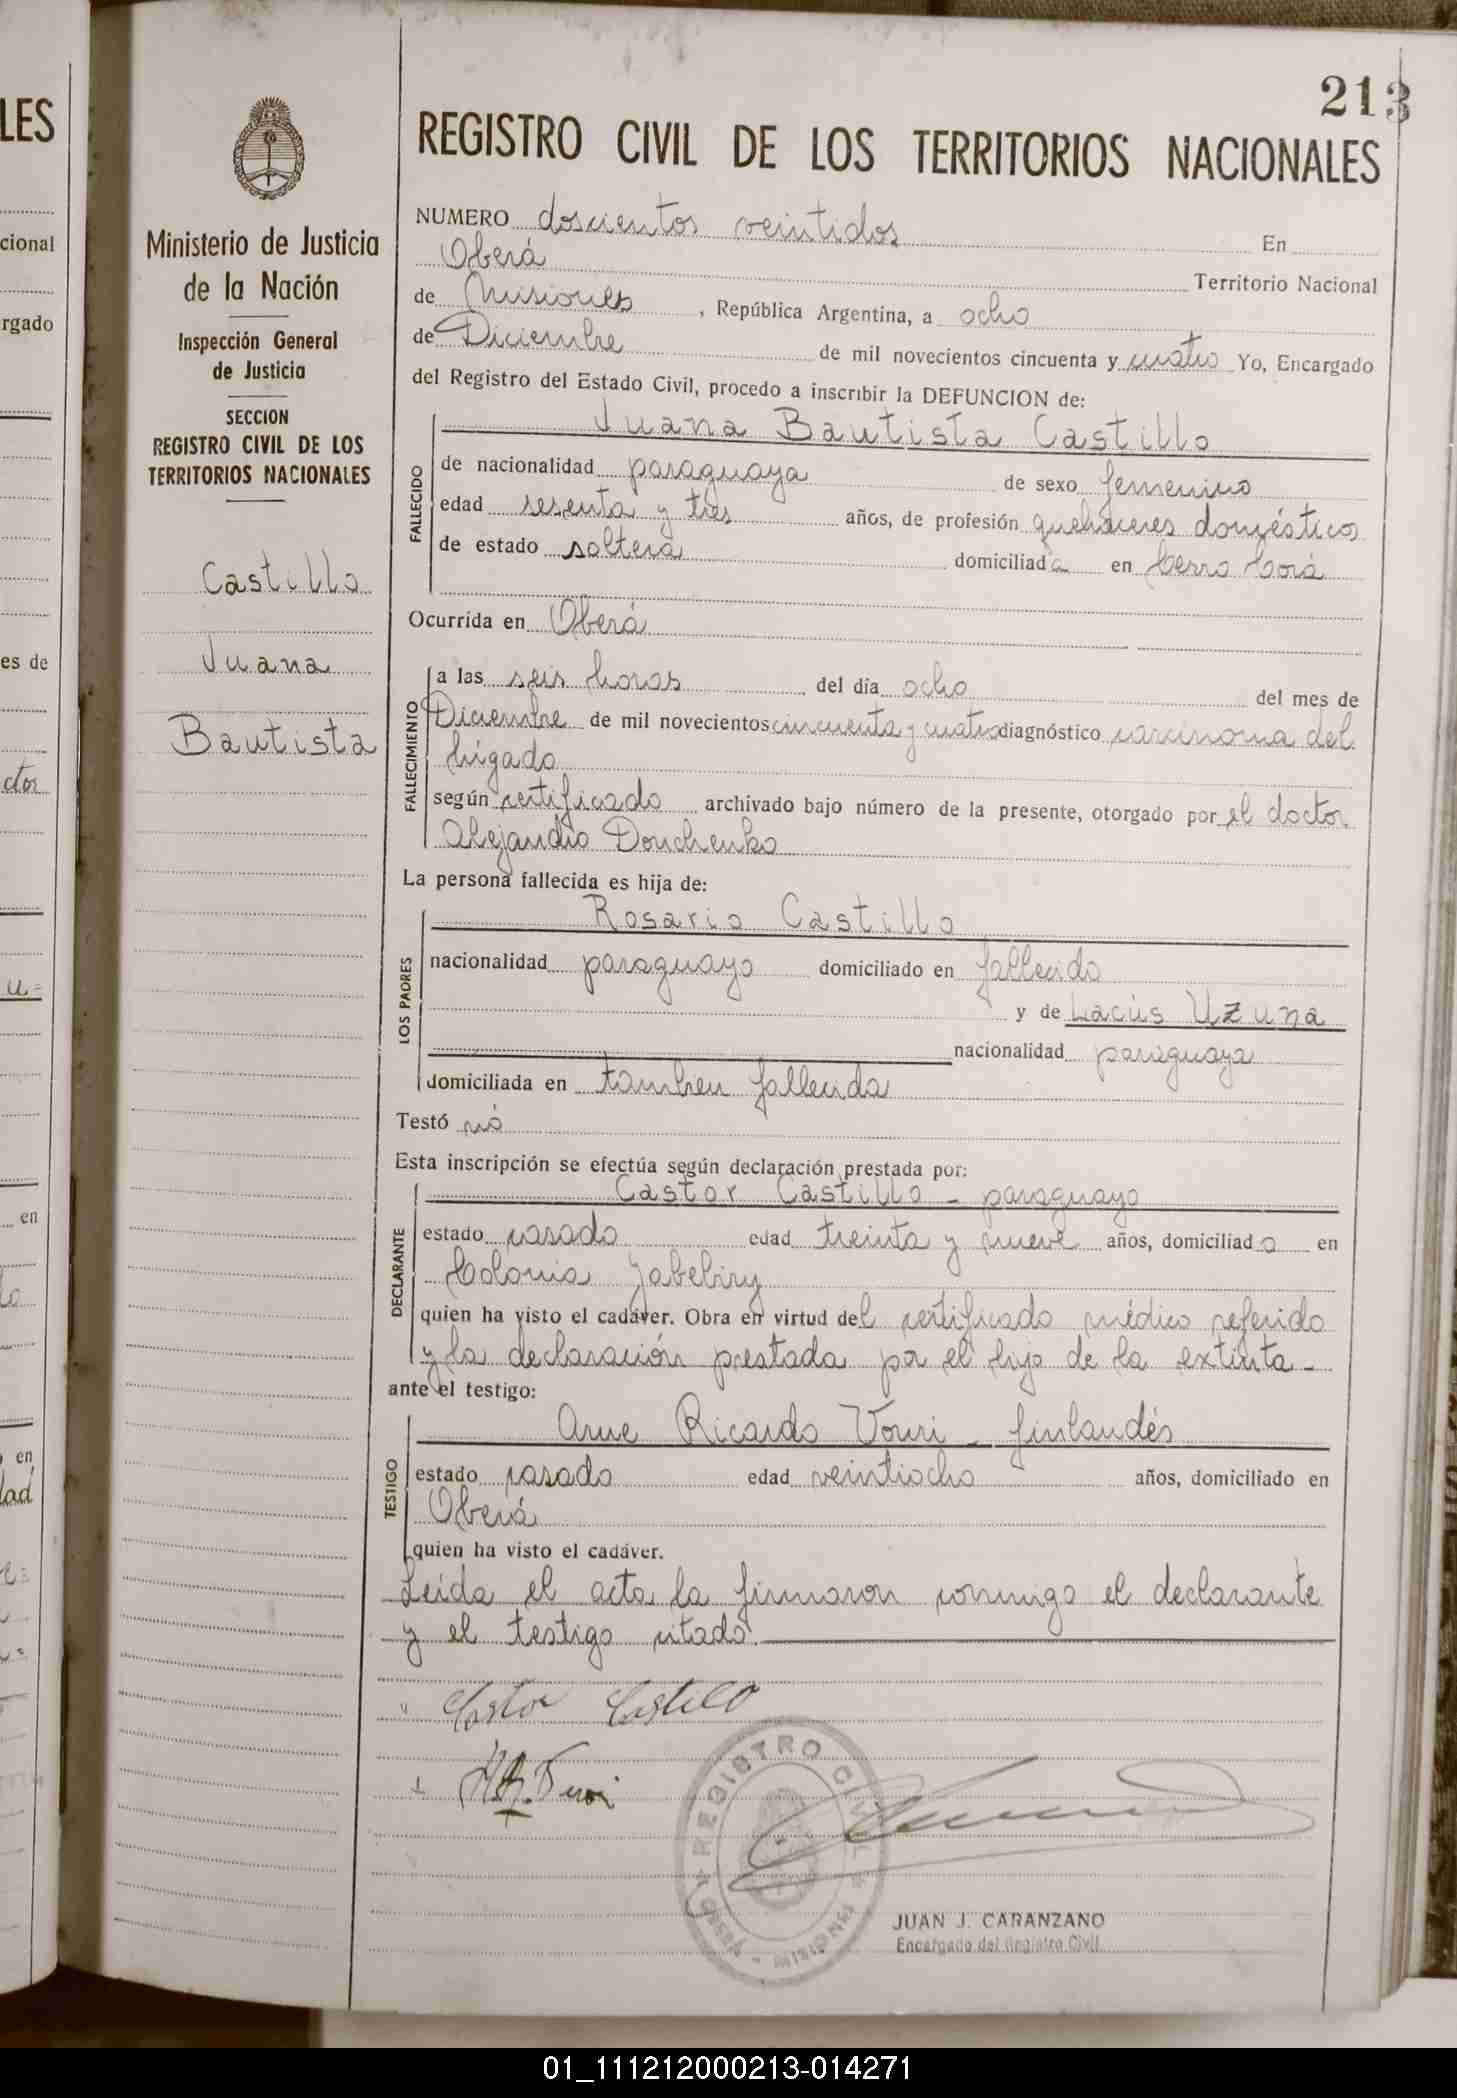 213
LES
cional
rgado
es de
ctor
u=
en
en
dad
Ministerio de Justicia
de la Nación
Inspección General
de Justicia
SECCION
REGISTRO CIVIL DE LOS
TERRITORIOS NACIONALES
Castillo
Juana
Bautista
REGISTRO CIVIL DE LOS TERRITORIOS NACIONALES
NUMERO doscientos veintidos En
Oberá Territorio Nacional
de Misiones, República Argentina, a ocho
de Diciembre de mil novecientos cincuenta y cuatro Yo, Encargado
del Registro del Estado Civil, procedo a inscribir la DEFUNCION de:
FALLECIDO
Juana Bautista Castillo
de nacionalidad paraguaya de sexo femenino
edad sesenta y tres años, de profesión quehaceres domésticos
de estado soltera domiciliada en Cerro Corá
Ocurrida en Oberá
FALLECIMIENTO
a las seis horas del día ocho del mes de
Diciembre de mil novecientos cincuenta y cuatro diagnóstico carcinoma del
hígado
según certificado archivado bajo número de la presente, otorgado por el doctor
Alejandro Douchenko
La persona fallecida es hija de:
LOS PADRES
Rosario Castillo
nacionalidad paraguayo domiciliado en fallecido
y de Lacús Uzuna
nacionalidad paraguaya
domiciliada en tambien fallecida
Testó nó
Esta inscripción se efectúa según declaración prestada por:
DECLARANTE
Castor Castillo - paraguayo
estado casado edad treinta y nueve años, domiciliado en
Colonia Yabebiry
quien ha visto el cadáver. Obra en virtud del certificado médico referido
y la declaración prestada por el hijo de la extinta -
ante el testigo:
TESTIGO
Arne Ricardo Vouri - finlandés
estado casado edad veintiocho años, domiciliado en
Oberá
quien ha visto el cadáver.
Leída el acta la firmaron conmigo el declarante
y el testigo citado.
Castor Castillo
REGISTRO CIVIL
OBERA - MISIONES
JUAN J. CARANZANO
Encargado del Registro Civil
01_111212000213-014271